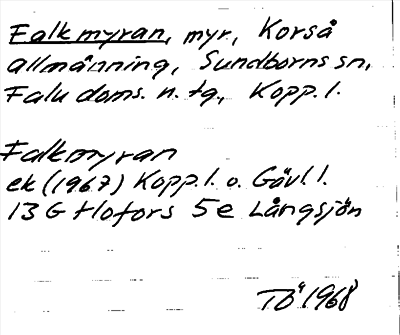 Falkmyran, myr, Korså
allmänning, Sundborns sn,
Falu doms. n. tg., Kopp. l.
Falkmyran
ek (1967) Kopp. l. o. Gävl. l.
13 G Hofors 5e Långsjön
Tö 1968